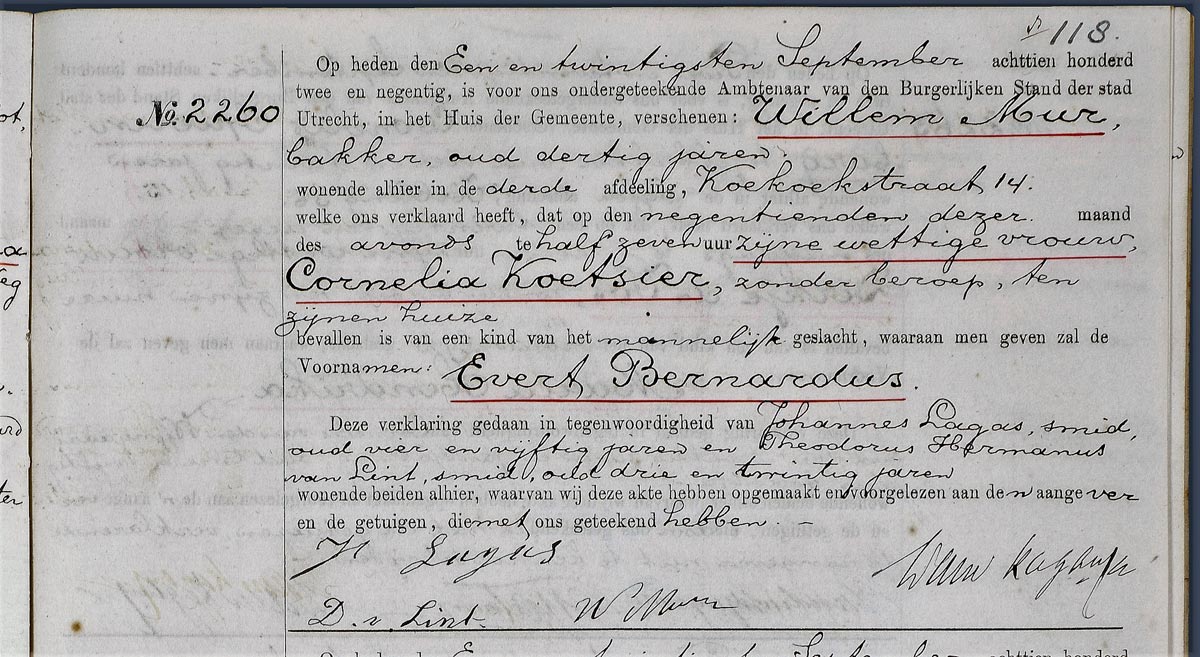 118.
Op heden den Een en twintigsten September achttien honderd
twee en negentig, is voor ons ondergeteekende Ambtenaar van den Burgerlijken Stand der stad
No. 2260
Utrecht, in het Huis der Gemeente, verschenen: Willem Mur,
bakker, oud dertig jaren.
wonende alhier in de derde afdeeling, Koekoekstraat 14.
welke ons verklaard heeft, dat op den negentienden dezer. maand
des avonds te half zeven uur zijne wettige vrouw,
Cornelia Koetsier, zonder beroep, ten
zijnen huize
bevallen is van een kind van het mannelijk geslacht, waaraan men geven zal de
Voornamen: Evert Bernardus.
Deze verklaring gedaan in tegenwoordigheid van Johannes Lagas, smid,
oud vier en vijftig jaren en Theodorus Hermanus
van Lint, smid, oud drie en twintig jaren
wonende beiden alhier, waarvan wij deze akte hebben opgemaakt en voorgelezen aan den aangever
en de getuigen, die met ons geteekend hebben. –
Lagas
D. v. Lint. W Mur